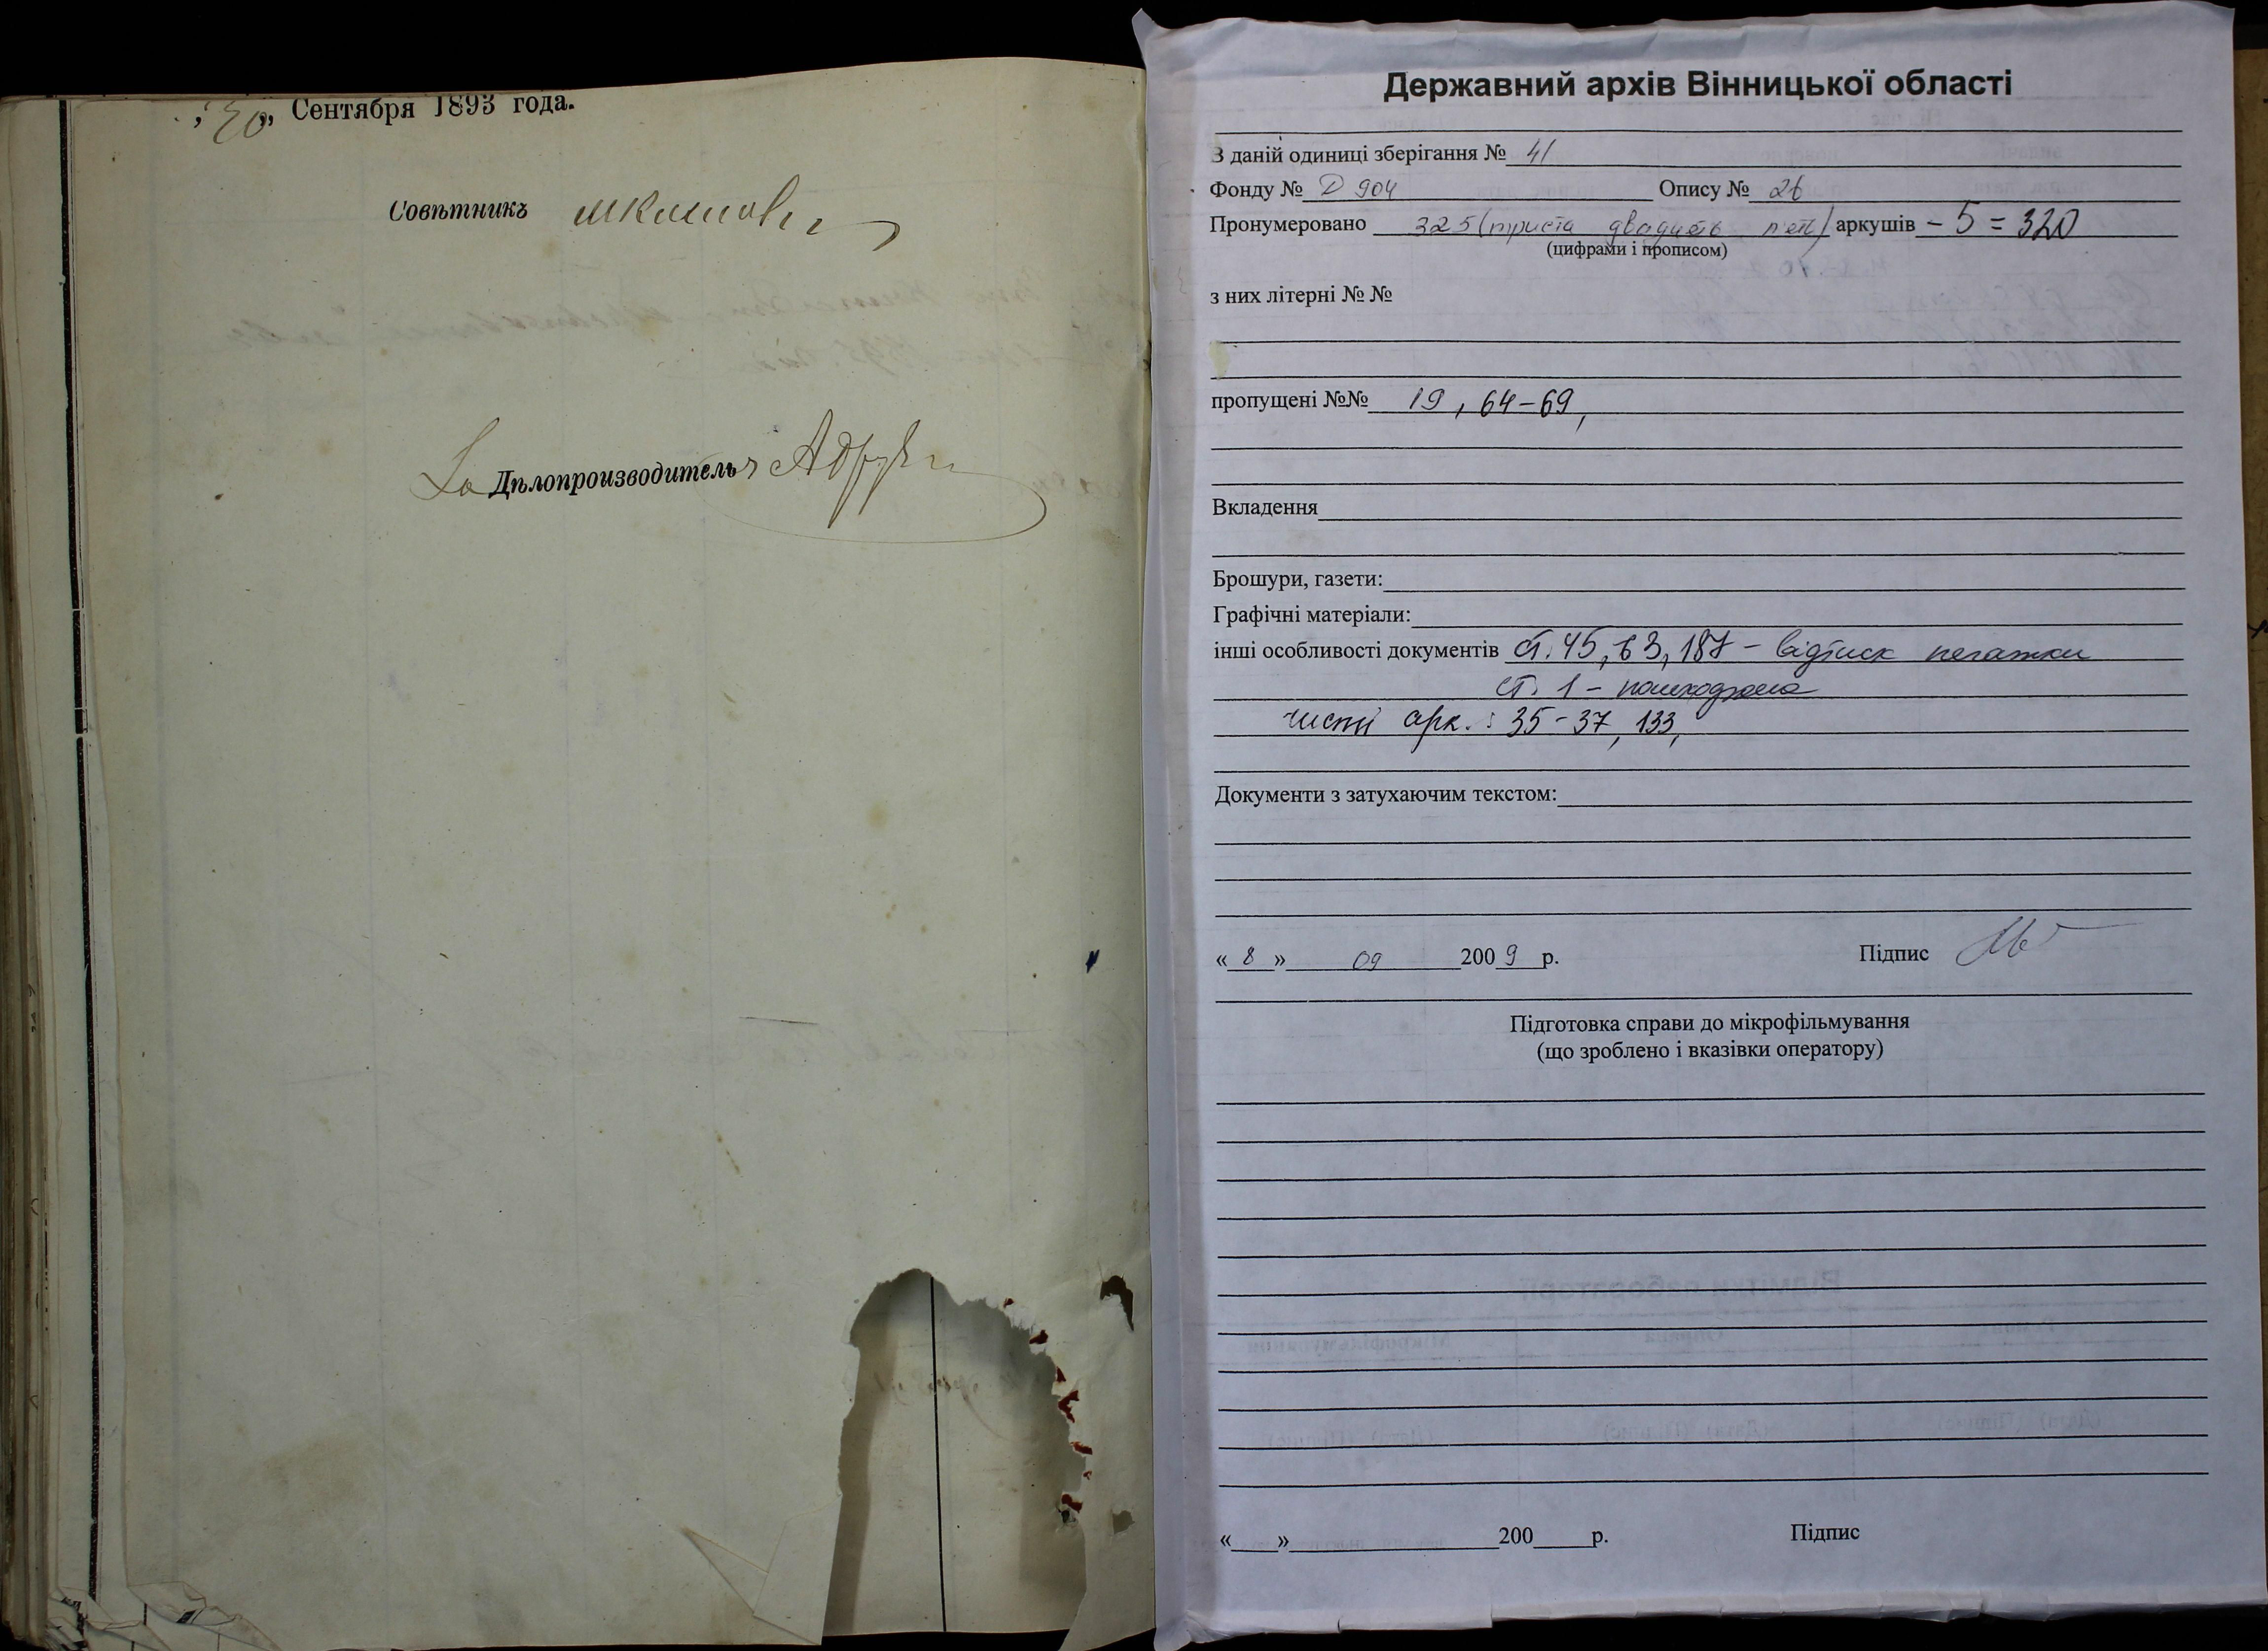 „30„ Сентября 1893 года.
Совѣтникъ
За Дѣлопроизводителя
Державний архів Вінницької області
З даній одиниці зберігання № 41
Фонду № Д 904 Опису № 26
Пронумеровано 325 (триста двадцять п'ять) аркушів – 5 = 320
(цифрами і прописом)
з них літерні № №
пропущені №№ 19, 64–69,
Вкладення
Брошури, газети:
Графічні матеріали:
інші особливості документів ст. 45, 63, 187 – відтиск печатки
ст. 1 – пошкоджена
чисті арк.: 35–37, 133,
Документи з затухаючим текстом:
« 8 » 09 2009 р. Підпис
Підготовка справи до мікрофільмування
(що зроблено і вказівки оператору)
«___»__________200___р. Підпис